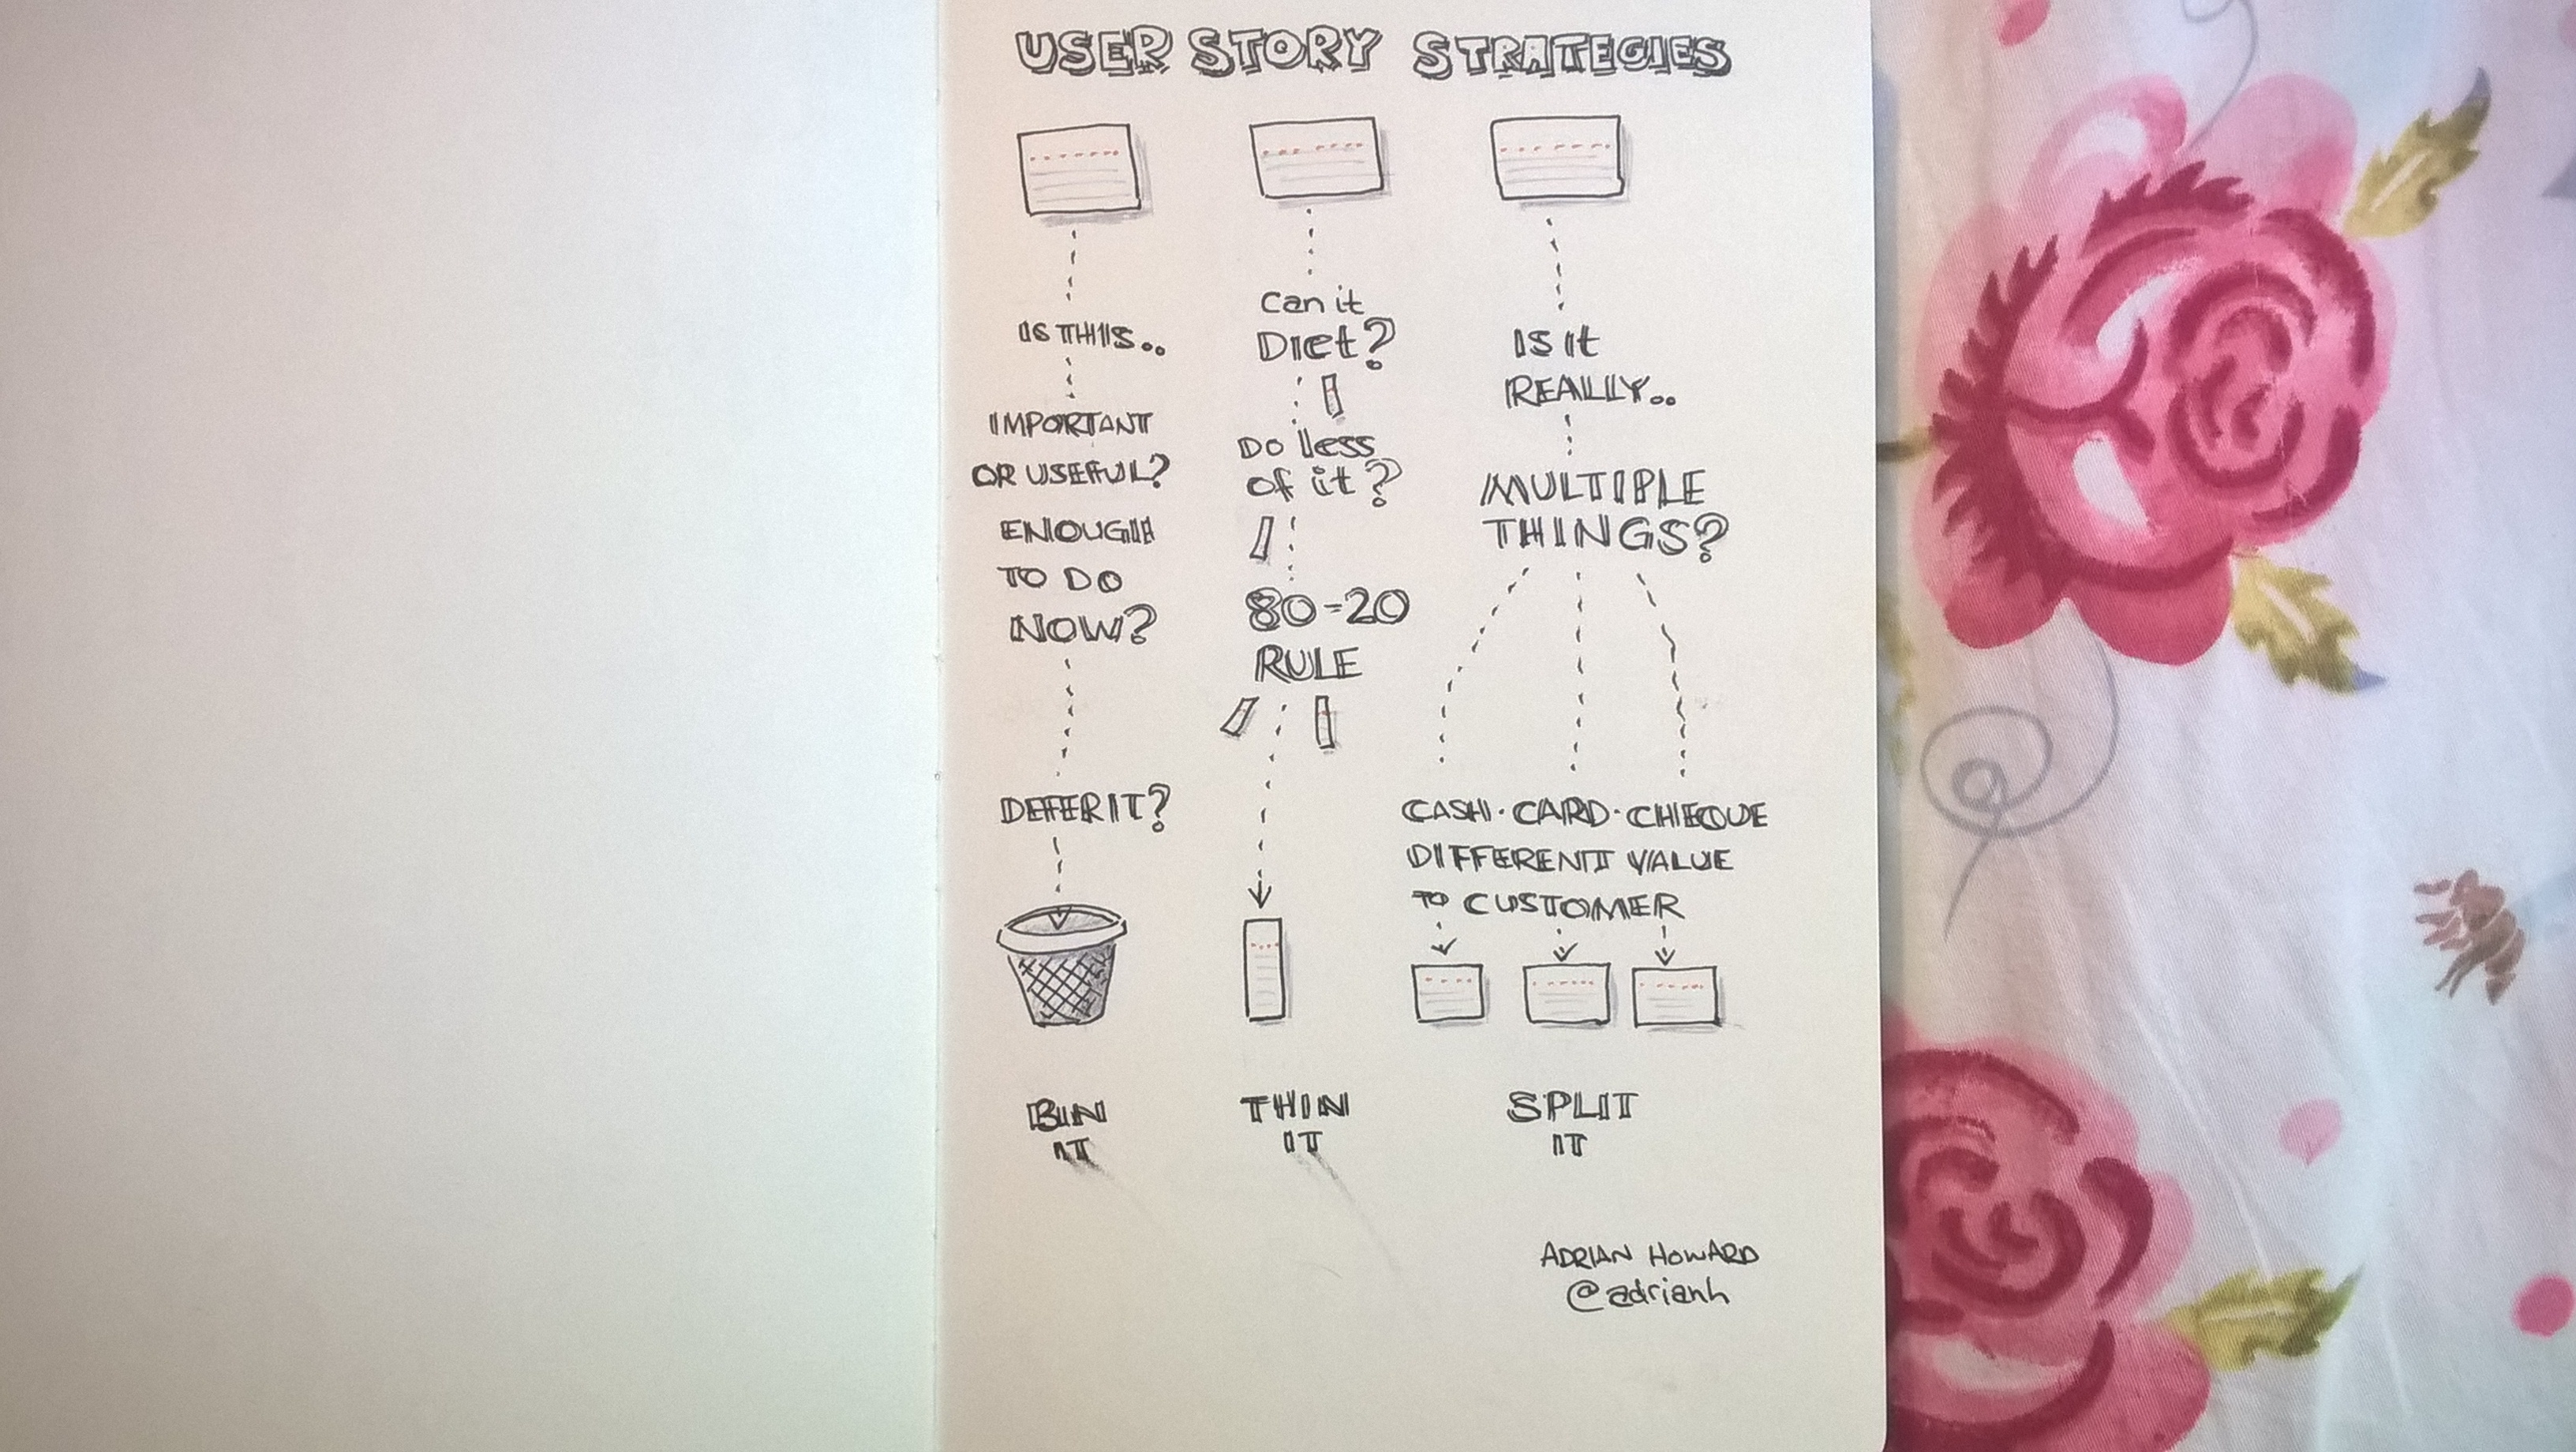 USER STORY STRATEGIES
IS THIS..
IMPORTANT
OR USEFUL?
ENOUGH
TO DO
NOW?
DEFER IT?
BIN
IT
Can it
Diet?
Do less
of it?
80-20
RULE
THIN
IT
Is it
REALLY..
MULTIPLE
THINGS?
CASH · CARD · CHEQUE
DIFFERENT VALUE
TO CUSTOMER
SPLIT
IT
ADRIAN HOWARD
@adrianh